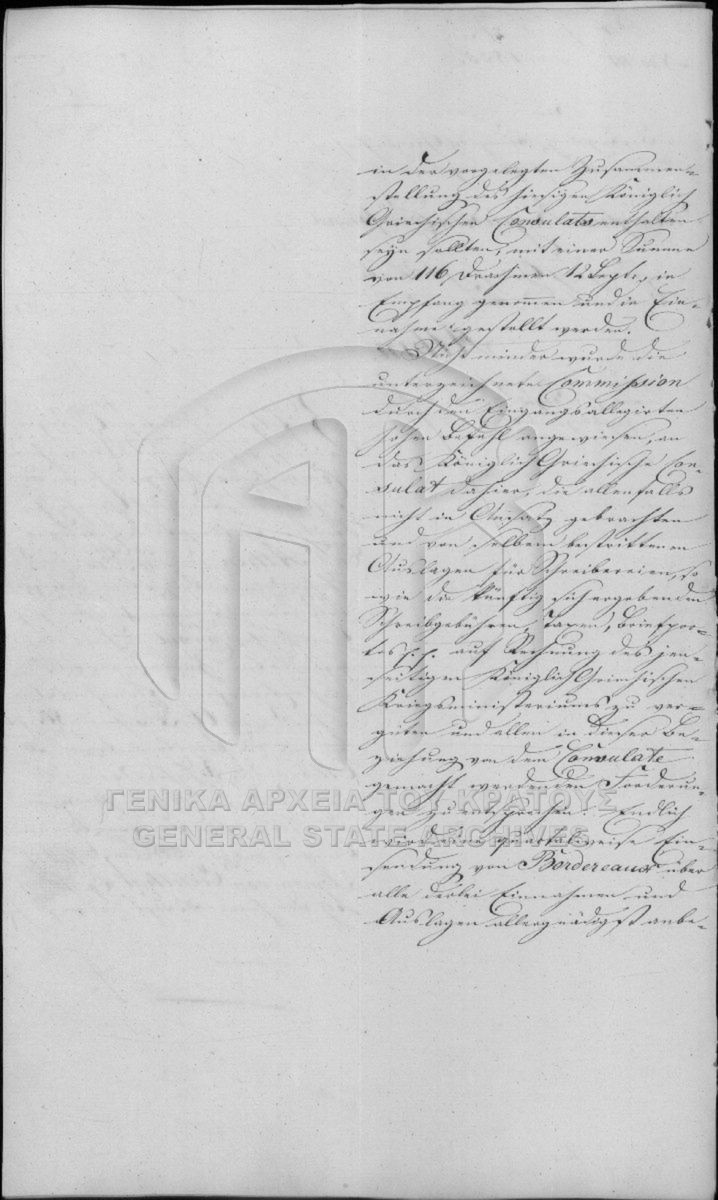 in der vorgelegten Zusammen-
stellung des hiesigen Königlich
Griechischen Consulats enthalten
seyn sollten, mit einer Summe
von 116 Drachmen 12 Lepta, in
Empfang genommen und in Ein-
nahme gestellt werden.
Nicht minder wurde die
unterzeichnete Commission
durch den Eingangs allegirten
hohen Befehl angewiesen, an
das Königlich Griechische Con-
sulat dahier, die allenfalls
nicht in Ansatz gebrachten
und von selbem bestrittenen
Auslagen für Schreibereien, so
wie die künftig sich ergebenden
Schreibgebühren, Taxen, Briefpor-
tos p. p. auf Rechnung des jen-
seitigen Königlich Griechischen
Kriegsministeriums zu ver-
güten und allen in dieser Be-
ziehung von dem Consulate
gemacht werdenden Forderun-
gen zu entsprechen. Endlich
wird die quartalweise Ein-
sendung von Bordereaux über
alle derlei Einnahmen und
Auslagen allergnädigst anbe-
ΓΕΝΙΚΑ ΑΡΧΕΙΑ ΤΟΥ ΚΡΑΤΟΥΣ
GENERAL STATE ARCHIVES